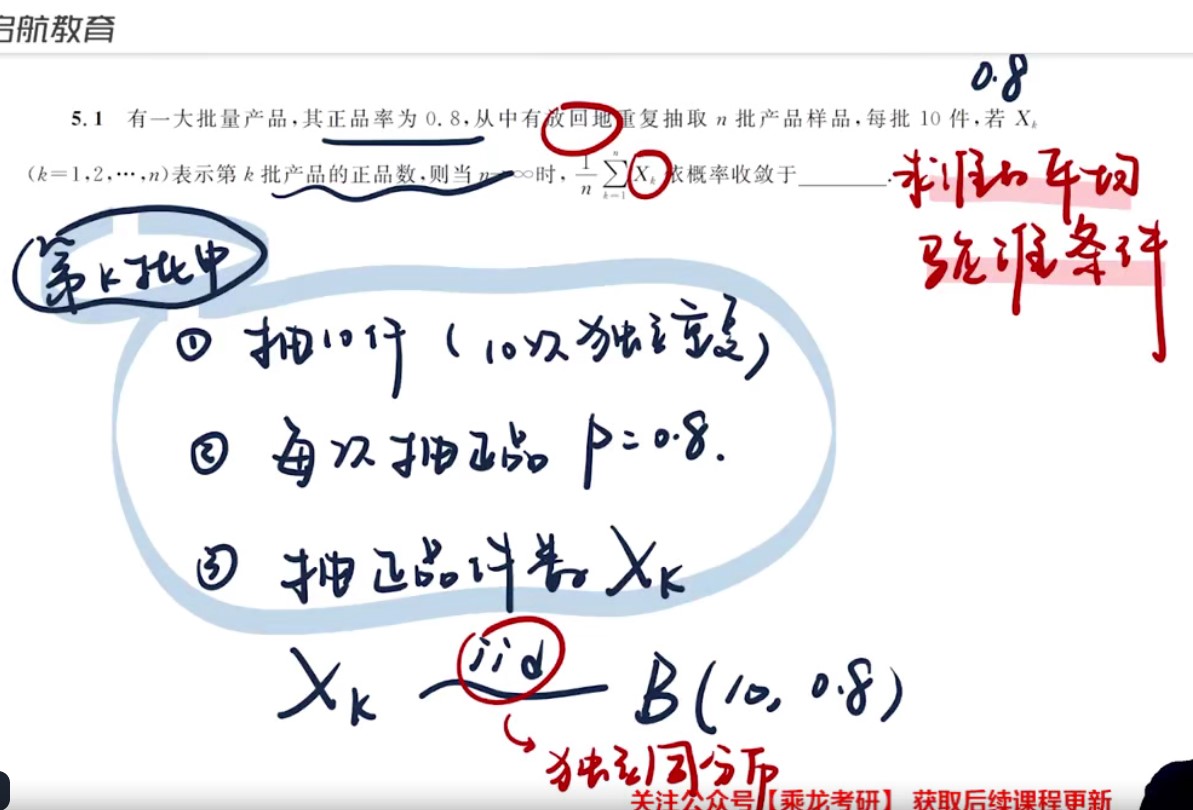 启航教育
0.8
5.1 有一大批量产品,其正品率为 0.8,从中有放回地重复抽取 n 批产品样品,每批 10 件,若 Xₖ
(k=1,2,…,n)表示第 k 批产品的正品数,则当 n→∞时, 1/n ∑ₖ₌₁ⁿ Xₖ 依概率收敛于________.
求谁的平均
验谁条件
第k批中
① 抽10件 (10次独立重复)
② 每次抽正品 P=0.8.
③ 抽正品件数 Xₖ
Xₖ iid B(10, 0.8)
独立同分布
关注公众号【乘龙考研】 获取后续课程更新